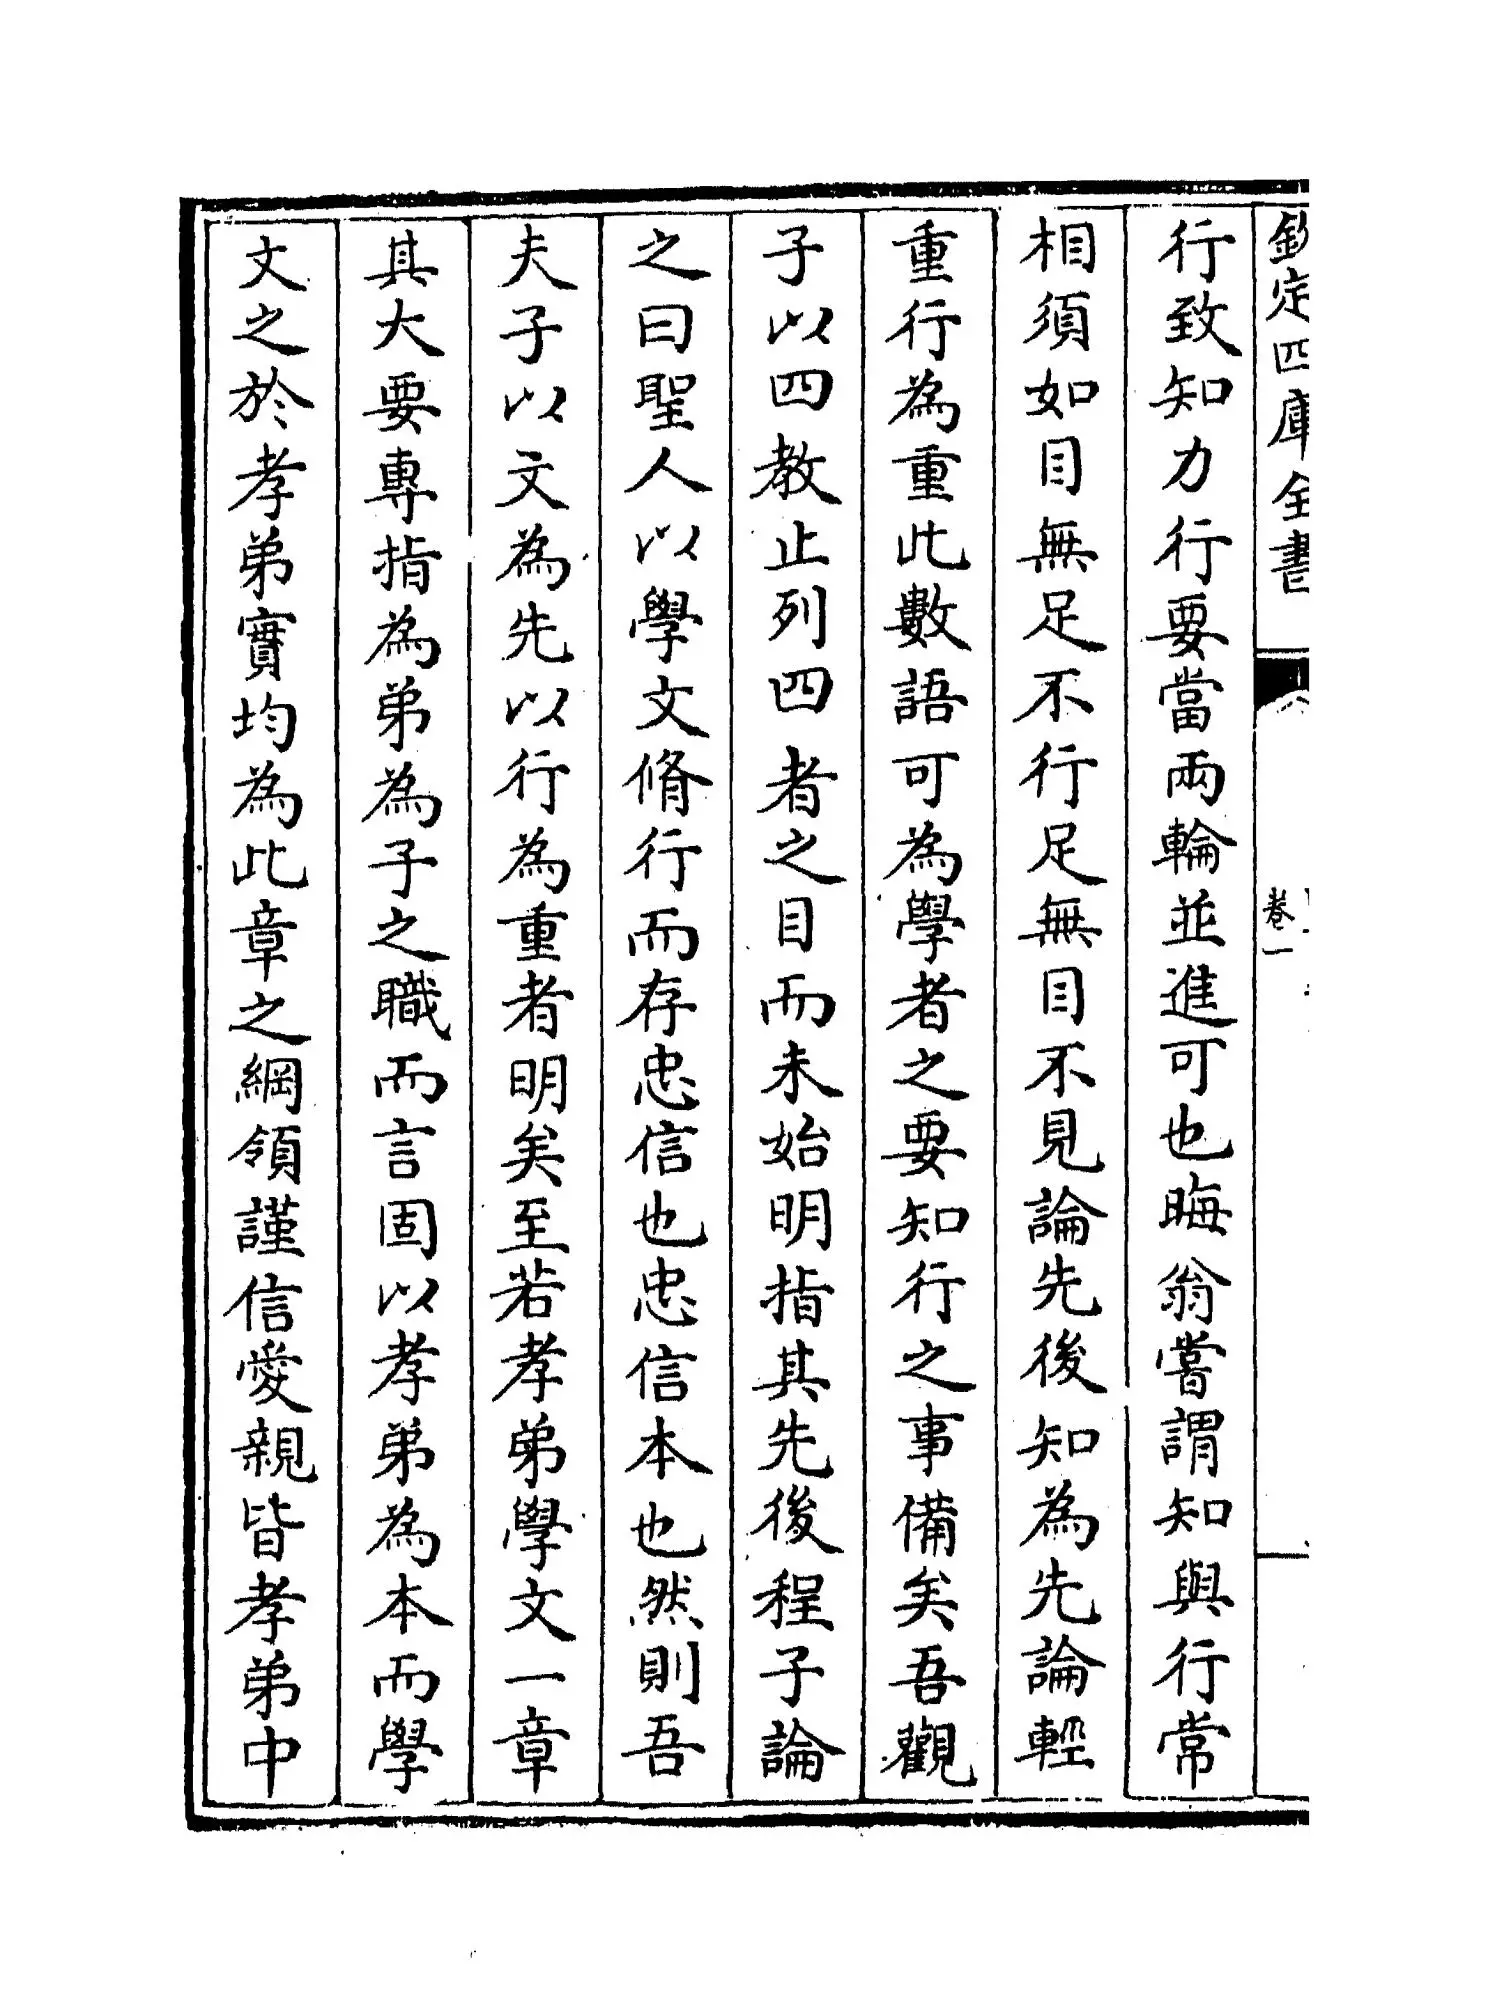 欽定四庫全書
卷一
行致知力行要當兩輪並進可也晦翁嘗謂知與行常
相須如目無足不行足無目不見論先後知為先論輕
重行為重此數語可為學者之要知行之事備矣吾觀
子以四教止列四者之目而未始明指其先後程子論
之曰聖人以學文脩行而存忠信也忠信本也然則吾
夫子以文為先以行為重者明矣至若孝弟學文一章
其大要專指為弟為子之職而言固以孝弟為本而學
文之於孝弟實均為此章之綱領謹信愛親皆孝弟中